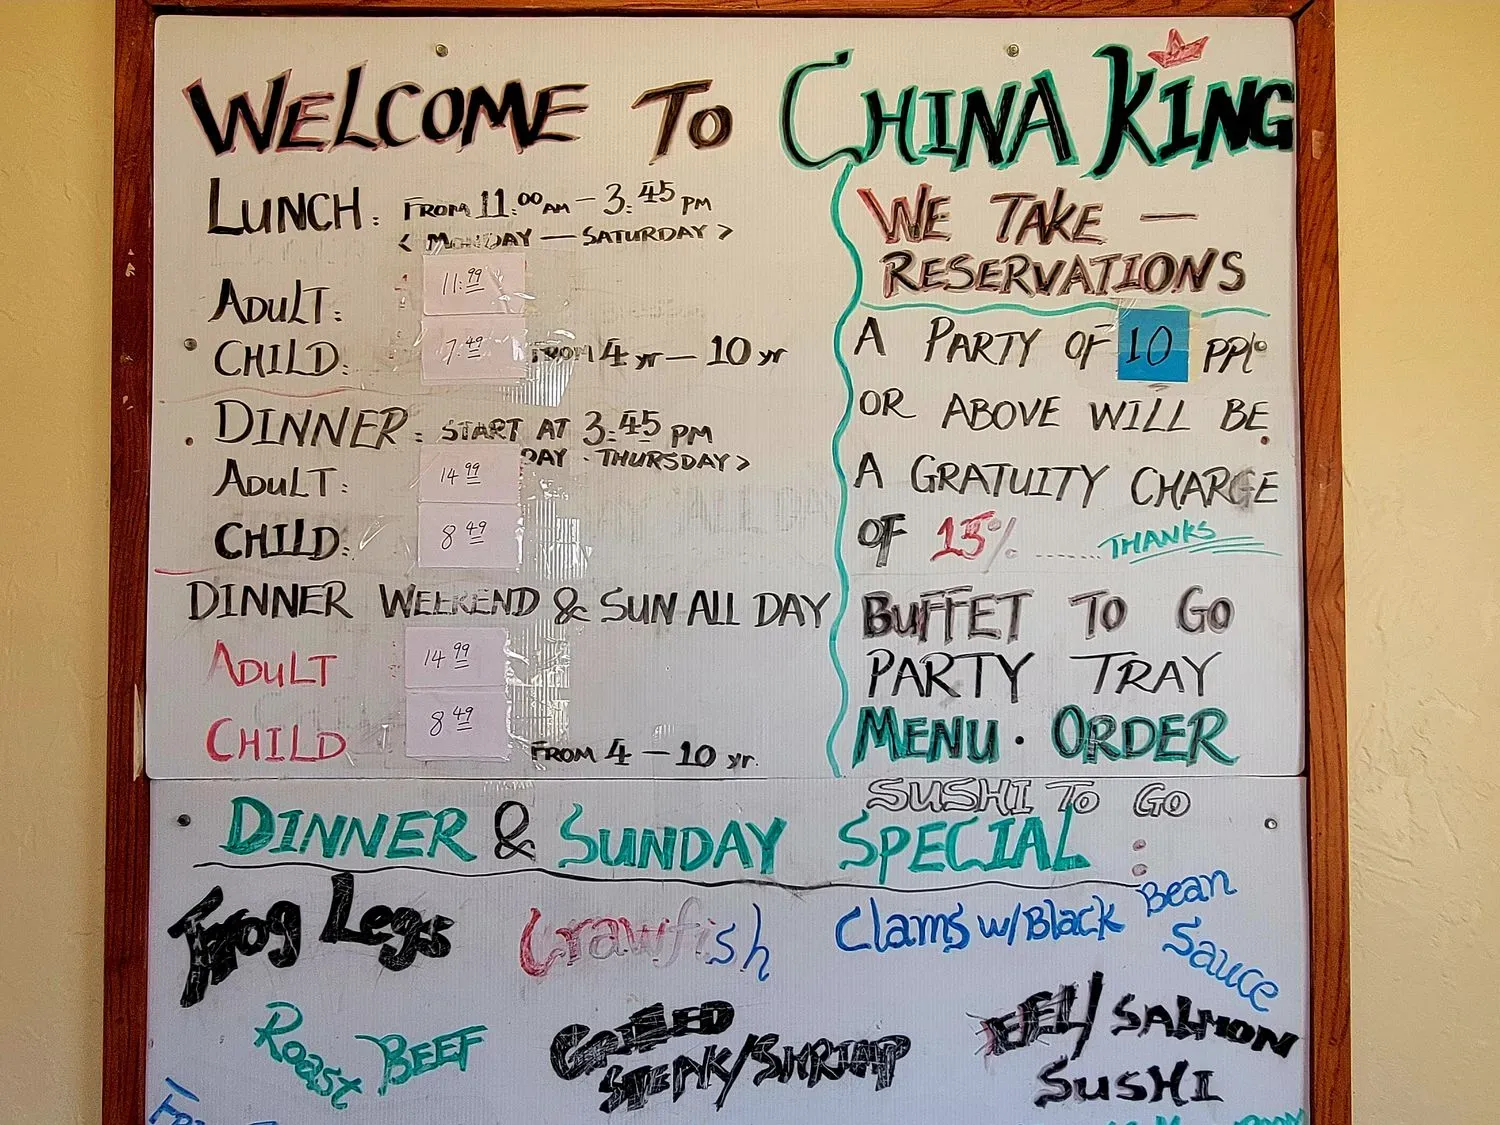 WELCOME TO CHINA KING
LUNCH: FROM 11:00 AM - 3:45 PM
< MONDAY - SATURDAY >
ADULT: 11.99
CHILD: 7.49 FROM 4 yr - 10 yr
DINNER: START AT 3:45 PM
DAY - THURSDAY >
ADULT: 14 99
CHILD: 8 49
DINNER WEEKEND & SUN ALL DAY
ADULT 14 99
CHILD 8 49 FROM 4 - 10 yr.
WE TAKE -
RESERVATIONS
A PARTY OF 10 PPL
OR ABOVE WILL BE
A GRATUITY CHARGE
OF 15% ........ THANKS
BUFFET TO GO
PARTY TRAY
MENU · ORDER
SUSHI TO GO
DINNER & SUNDAY SPECIAL:
Frog Legs Crawfish Clams w/Black Bean
Sauce
Roast BEEF GRILLED
STEAK/SHRIMP
EEL/SALMON
SUSHI